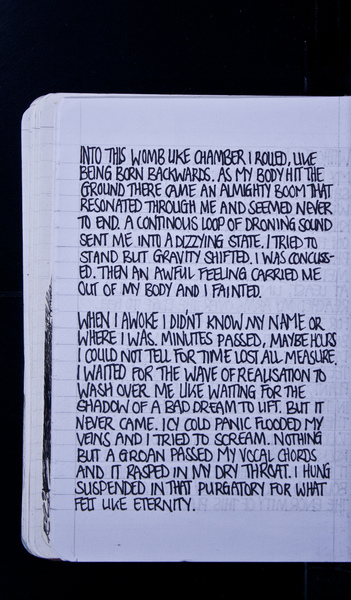 INTO THIS WOMB LIKE CHAMBER I ROLLED, LIKE
BEING BORN BACKWARDS. AS MY BODY HIT THE
GROUND THERE CAME AN ALMIGHTY BOOM THAT
RESONATED THROUGH ME AND SEEMED NEVER
TO END. A CONTINOUS LOOP OF DRONING SOUND
SENT ME INTO A DIZZYING STATE. I TRIED TO
STAND BUT GRAVITY SHIFTED. I WAS CONCUSS-
ED. THEN AN AWFUL FEELING CARRIED ME
OUT OF MY BODY AND I FAINTED.
WHEN I AWOKE I DIDN'T KNOW MY NAME OR
WHERE I WAS. MINUTES PASSED, MAYBE HOURS
I COULD NOT TELL FOR TIME LOST ALL MEASURE.
I WAITED FOR THE WAVE OF REALISATION TO
WASH OVER ME LIKE WAITING FOR THE
SHADOW OF A BAD DREAM TO LIFT. BUT IT
NEVER CAME. ICY COLD PANIC FLOODED MY
VEINS AND I TRIED TO SCREAM. NOTHING
BUT A GROAN PASSED MY VOCAL CHORDS
AND IT RASPED IN MY DRY THROAT. I HUNG
SUSPENDED IN THAT PURGATORY FOR WHAT
FELT LIKE ETERNITY.